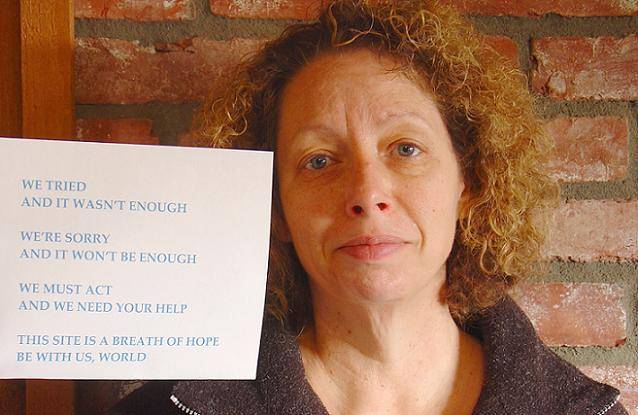 WE TRIED
AND IT WASN'T ENOUGH
WE'RE SORRY
AND IT WON'T BE ENOUGH
WE MUST ACT
AND WE NEED YOUR HELP
THIS SITE IS A BREATH OF HOPE
BE WITH US, WORLD